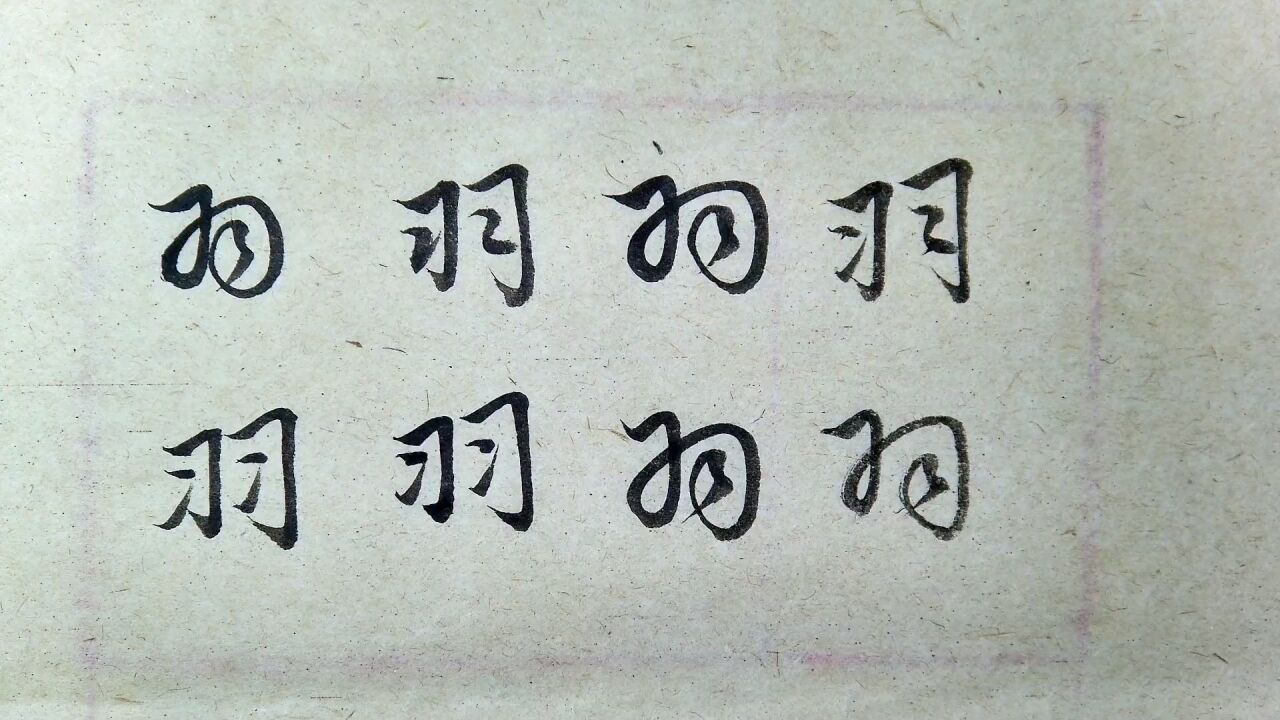 羽羽羽羽
羽羽羽羽